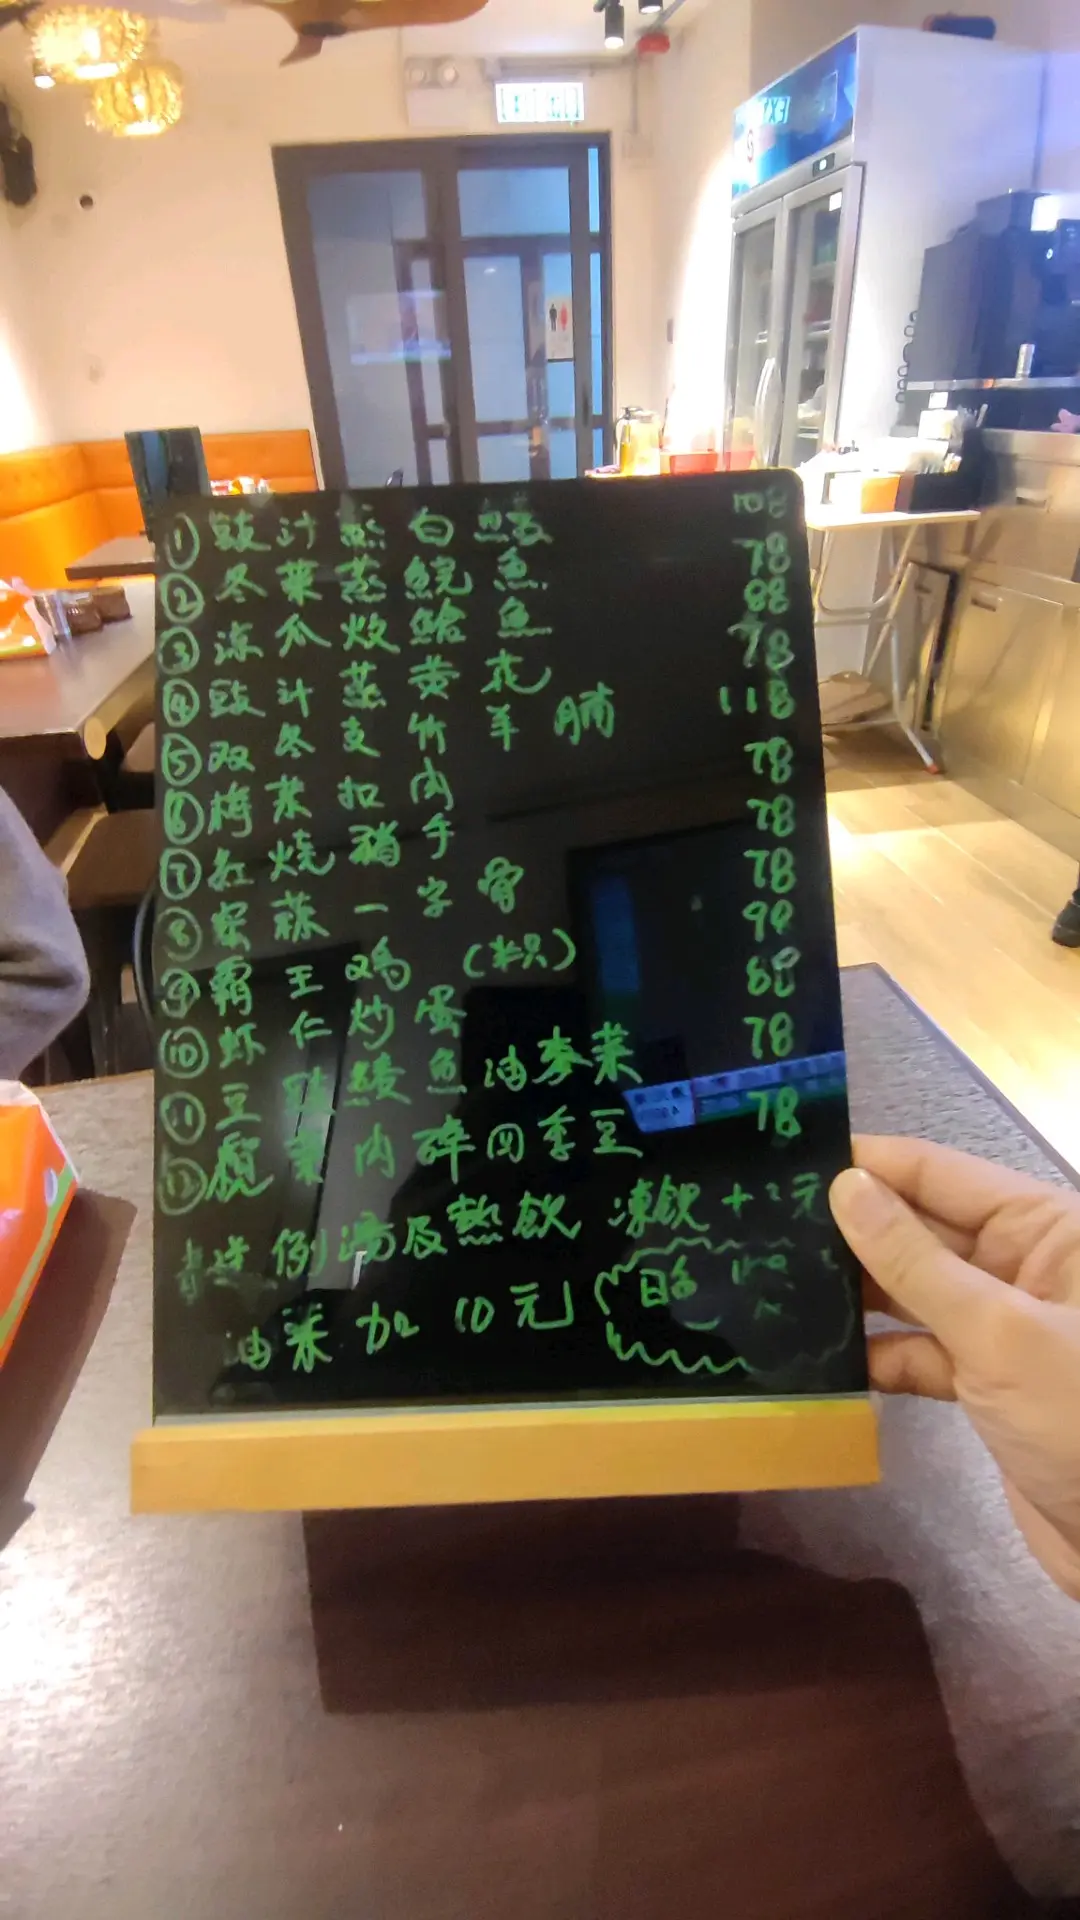 ① 豉汁蒸白鱔 108
② 冬菜蒸鯇魚 78
③ 涼瓜炆鮨魚 88
④ 豉汁蒸黄花 78
⑤ 双冬支竹羊腩 118
⑥ 梅菜扣肉 78
⑦ 紅燒豬手 78
⑧ 蒜一字骨 78
⑨ 霸王鸡 (半只) 90
⑩ 虾仁炒蛋 88
⑪ 豆豉鯪魚油麥菜 78
⑫ 欖菜肉碎四季豆 78
送 例湯及熱飲 凍飲+2元
油菜加10元